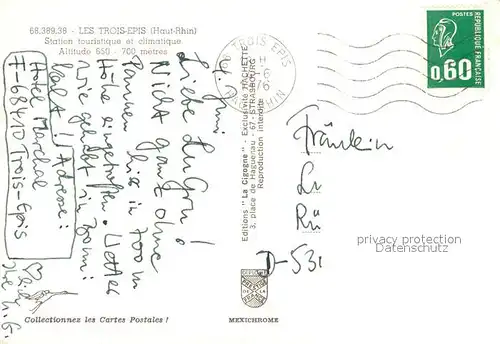 68.389.38 - LES TROIS-EPIS (Haut-Rhin)
Station touristique et climatique
Altitude 650 - 700 mètres
Juni
Liebe LuGru!
Nicht ganz ohne
Pannen hier in 700 m
Höhe eingetroffen. Wetter
wie gehabt in Bonn:
kalt! Adresse:
Hotel Marchal
F-68410 Trois-Epis
Collectionnez les Cartes Postales !
Editions "La Cigogne" - Exclusivité HACHETTE
3, place de Haguenau - 67-STRASBOURG
Reproduction interdite
MEXICHROME
TROIS EPIS
RHIN
POSTES
0,60
REPUBLIQUE FRANÇAISE
Fräulein
Lu
Rü
D-531
privacy protection
Datenschutz